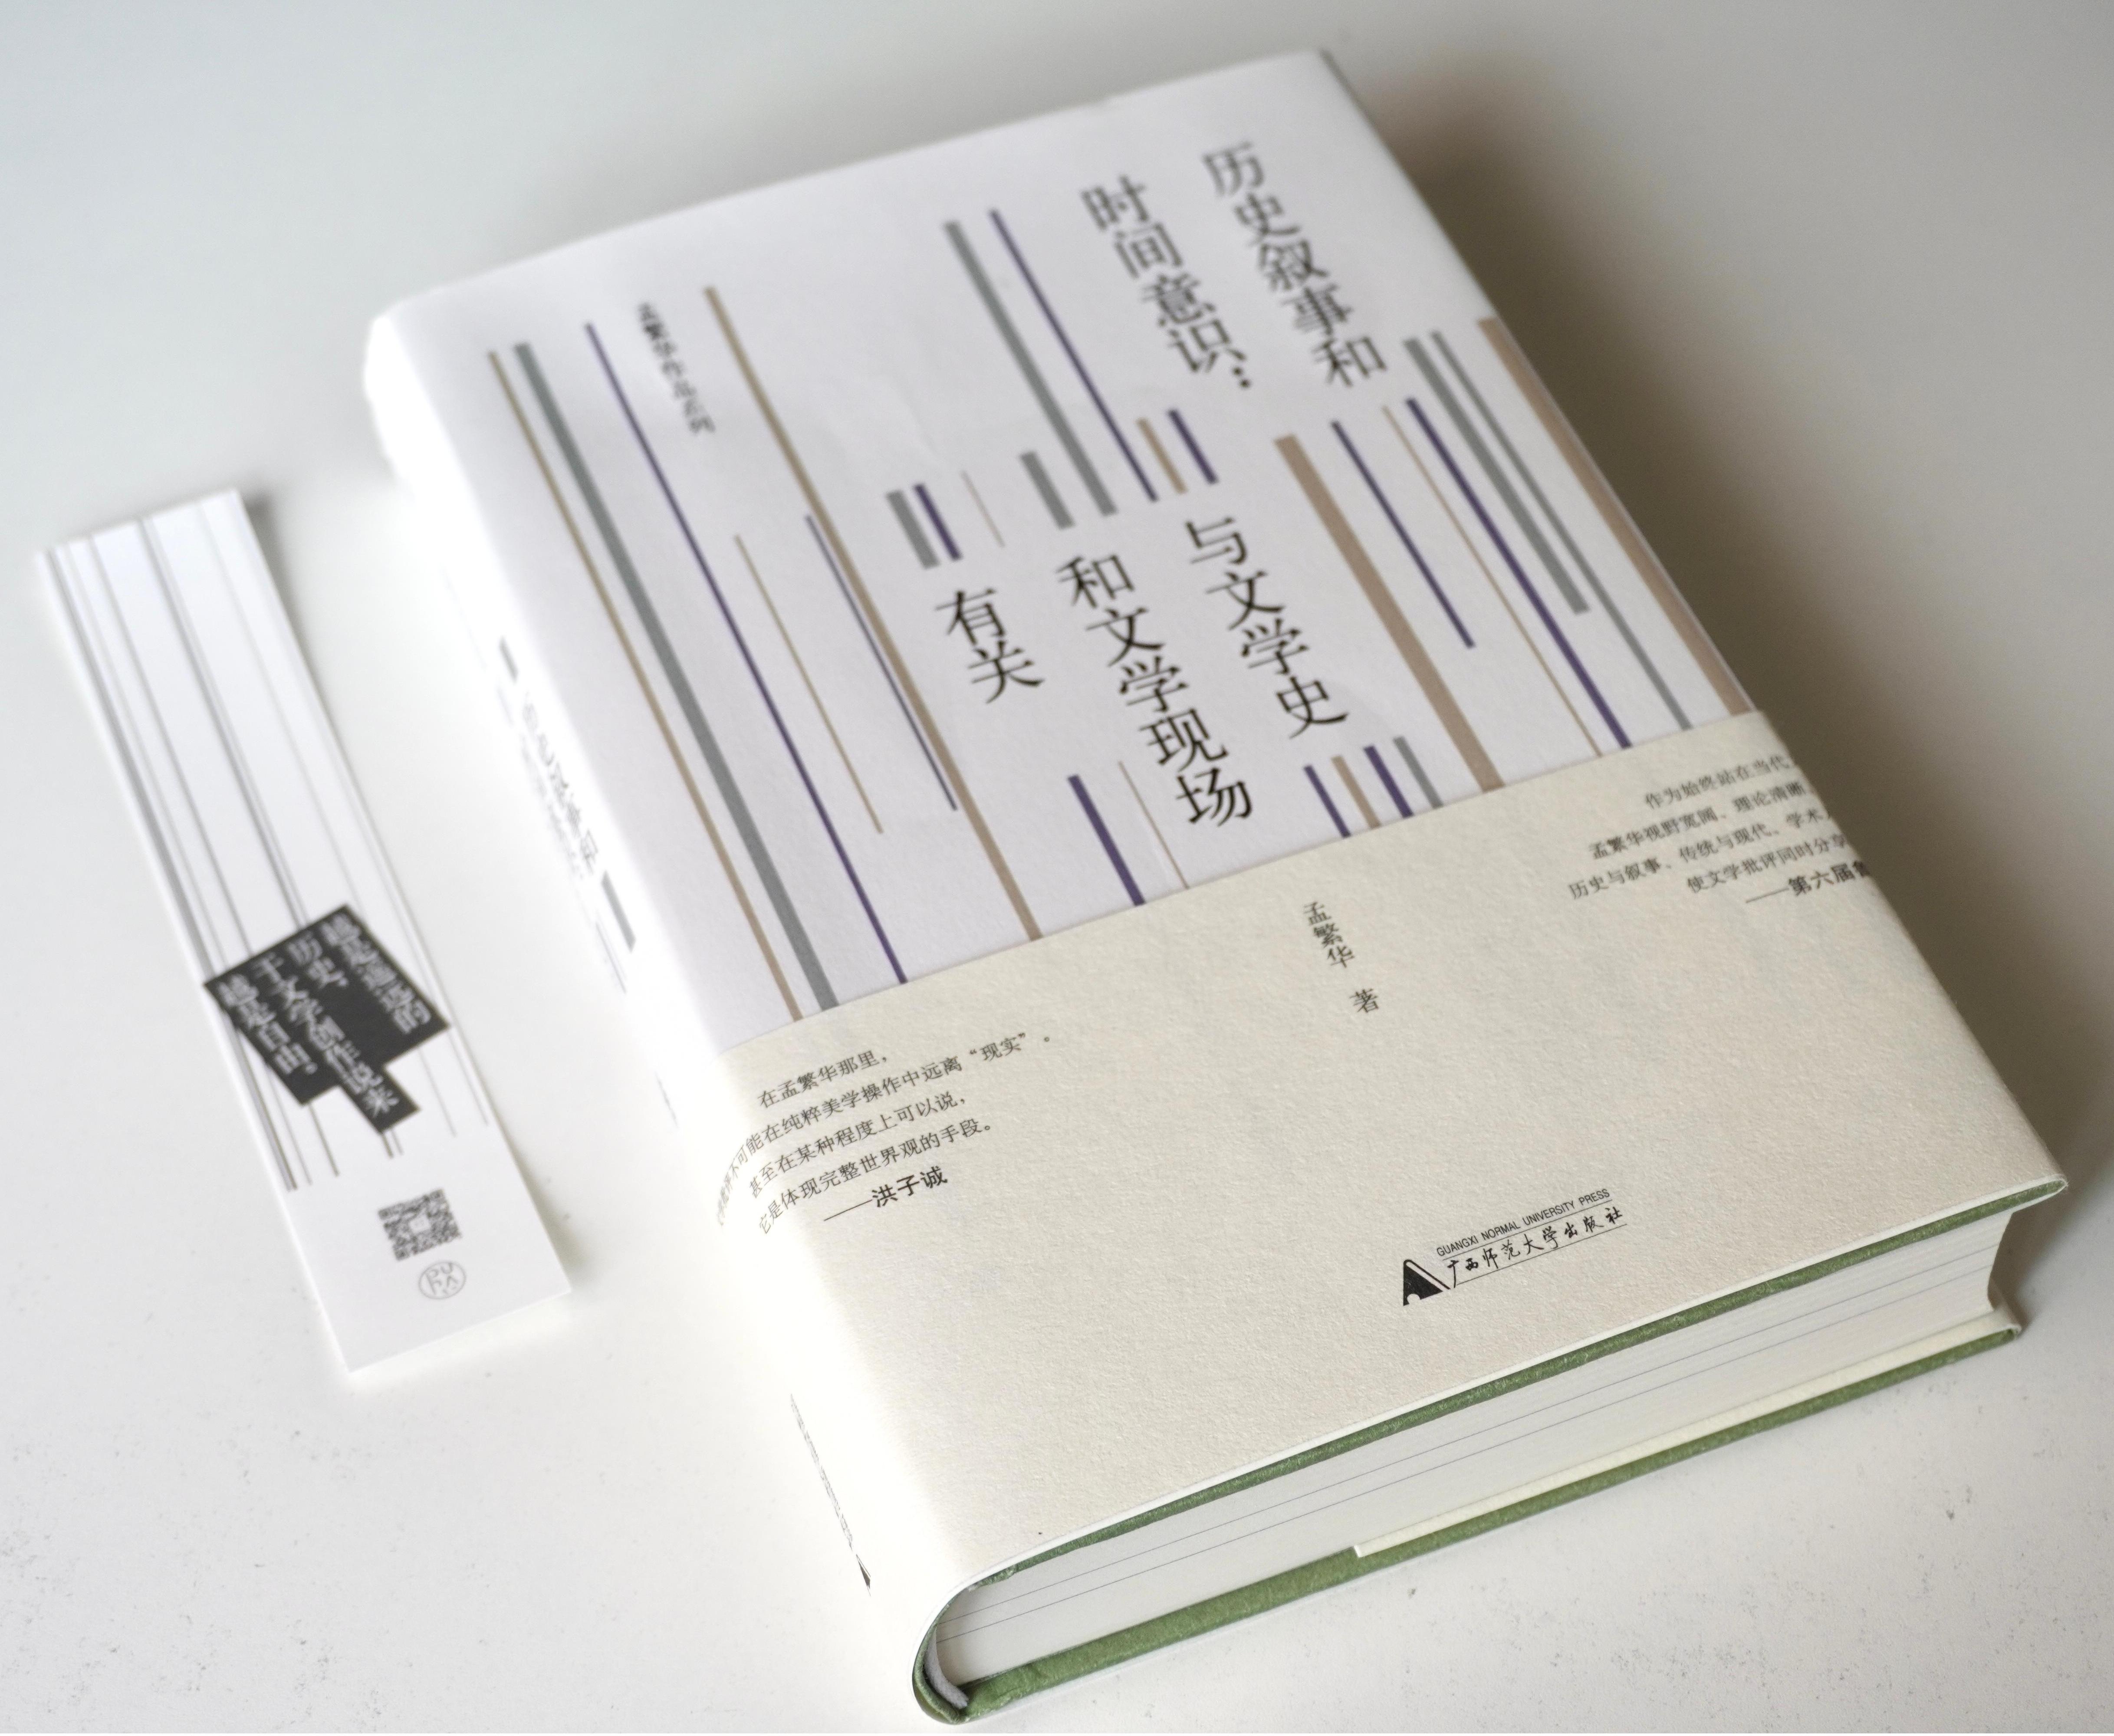 历史叙事和
时间意识：
与文学史
和文学现场
有关
孟繁华作品系列
孟繁华 著
作为始终站在当代
孟繁华视野宽阔、理论清晰
历史与叙事、传统与现代、学术
使文学批评同时分享
——第六届
在孟繁华那里，
不可能在纯粹美学操作中远离“现实”。
甚至在某种程度上可以说，
它是体现完整世界观的手段。
——洪子诚
GUANGXI NORMAL UNIVERSITY PRESS
广西师范大学出版社
越是遥远的
历史，
于文学创作说来
越是自由。